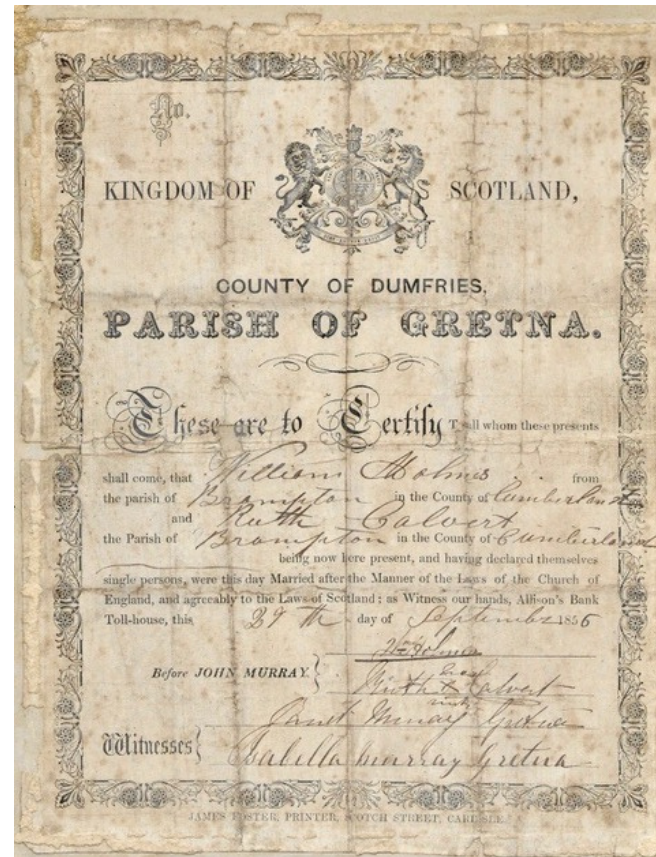 No.
KINGDOM OF SCOTLAND,
COUNTY OF DUMFRIES,
PARISH OF GRETNA.
These are to Certify To all whom these presents
shall come, that William Holmes from
the parish of Brampton in the County of Cumberland
and Ruth Calvert
the Parish of Brampton in the County of Cumberland
being now here present, and having declared themselves
single persons, were this day Married after the Manner of the Laws of the Church of
England, and agreeably to the Laws of Scotland; as Witness our hands, Allison's Bank
Toll-house, this 29th day of September 1856
Wm Holmes
Before JOHN MURRAY.
Ruth X Calvert
Janet Murray Gretna
Witnesses
Isabella Murray Gretna
JAMES FOSTER, PRINTER, SCOTCH STREET, CARLISLE.